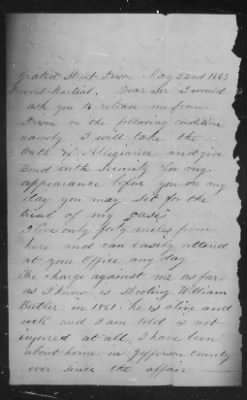 Gratiot Street Prison May 22nd 1863
Provost Marshal, Dear Sir I would
ask you to release me from
Prison on the following conditions
namely I will take the
Oath of Allegiance and give
Bond with Security for my
appearance before you on any
day you may set for the
trial of my "case"
I live only forty miles from
here and can easily attend
at your Office any day
The charge against me as far
as I know is shooting William
Butler in 1861. he is alive and
well and I am told is not
injured at all, I have been
about home in Jefferson County
ever since the affair